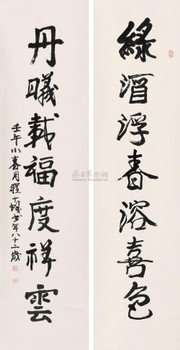 綠酒浮春溶喜色
丹曦載福度祥雲
壬午小春月程十髮年八十二歲